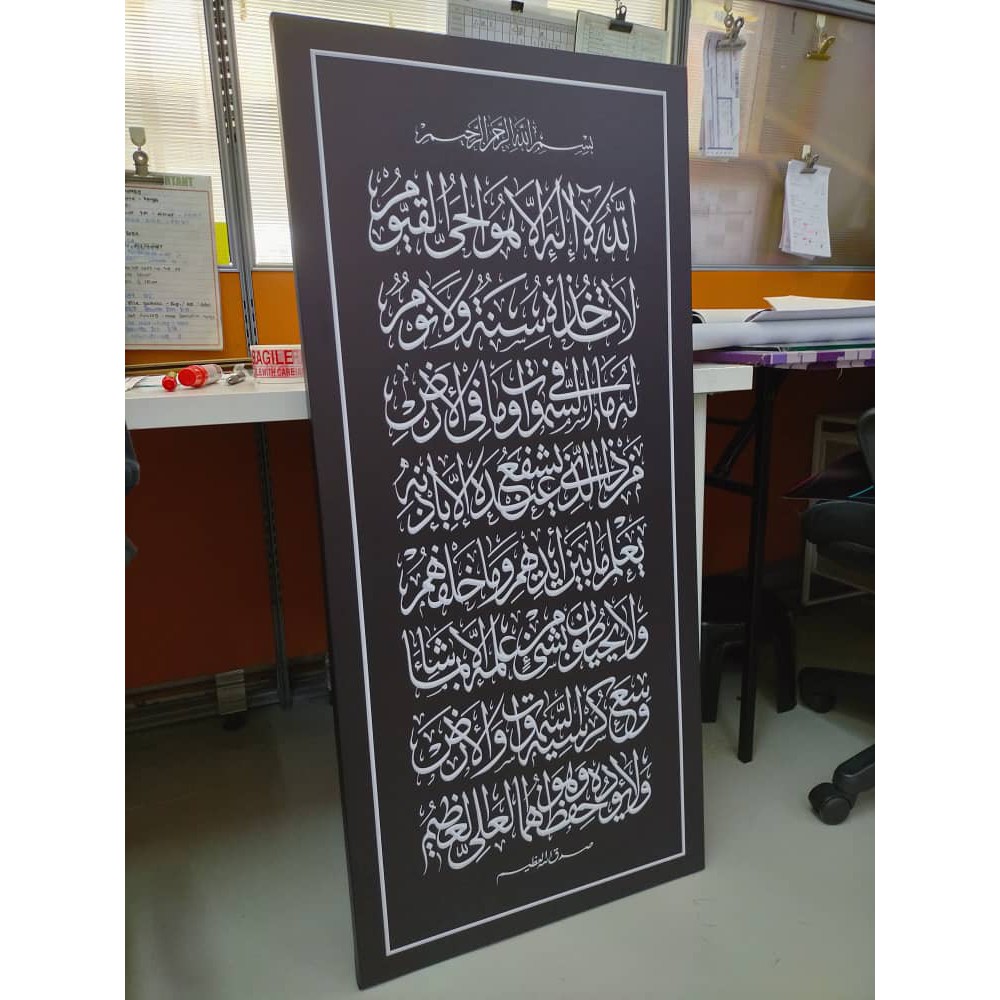 بسم الله الرحمن الرحيم
الله لا إله إلا هو الحي القيوم
لا تأخذه سنة ولا نوم
له ما في السموات وما في الأرض
من ذا الذي يشفع عنده إلا بإذنه
يعلم ما بين أيديهم وما خلفهم
ولا يحيطون بشيء من علمه إلا بما شاء
وسع كرسيه السموات والأرض
ولا يؤده حفظهما وهو العلي العظيم
صدق الله العظيم
FRAGILE